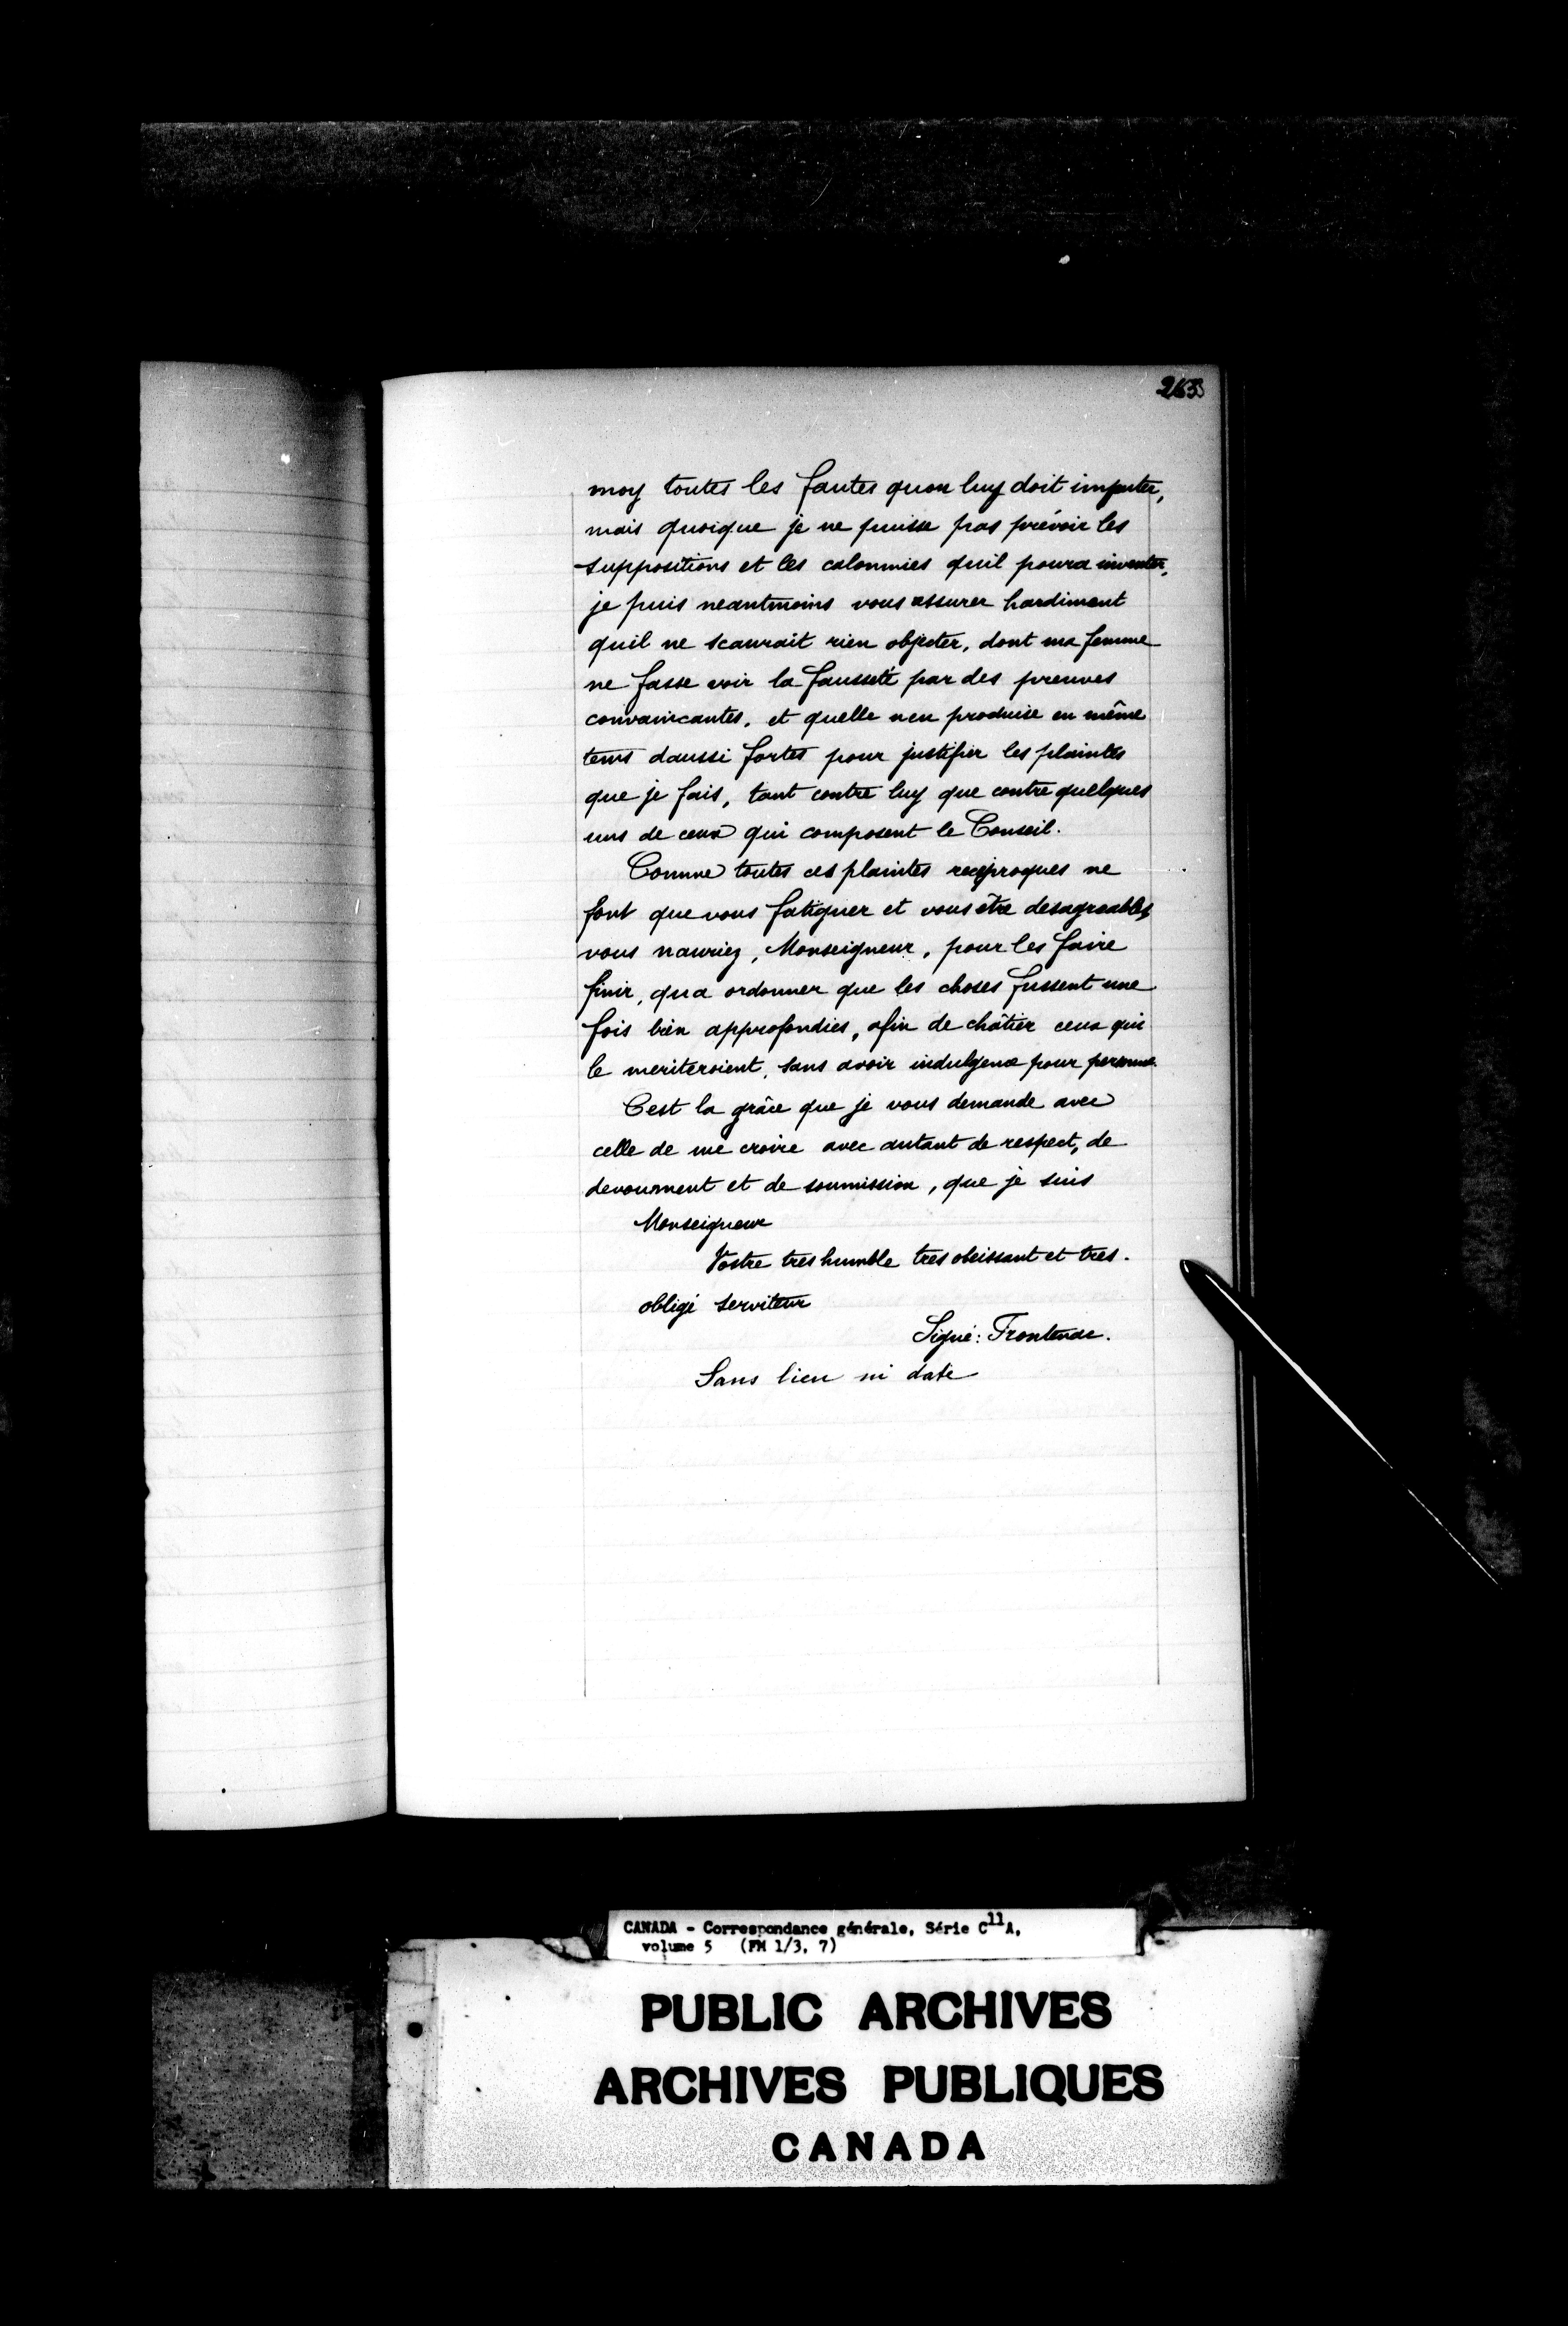 moy toutes les fautes quon luy doit imputer,
mais quoique je ne puisse pas prévoir les
suppositions et les calomnies quil poura inventer,
je puis neantmoins vous assurer hardiment
quil ne scaurait rien objecter, dont ma femme
ne fasse voir la fausseté par des preuves
convaincantes, et quelle nen produise en même
tems daussi fortes pour justifier les plaintes
que je fais, tant contre luy que contre quelques
uns de ceux qui composent le Conseil.
Comme toutes ces plaintes reciproques ne
font que vous fatiguer et vous être desagreables
vous nauriez, Monseigneur, pour les faire
finir, qua ordonner que les choses fussent une
fois bien approfondies, afin de châtier ceux qui
le meriteroient, sans avoir indulgence pour personne.
Cest la grâce que je vous demande avec
celle de me croire avec autant de respect, de
devoument et de soumission, que je suis
Monseigneur
Vostre tres humble tres obeissant et tres.
obligé serviteur
Signé: Frontenac.
Sans lieu ni date
CANADA - Correspondance générale, Série C11A,
volume 5 (FM 1/3, 7)
PUBLIC ARCHIVES
ARCHIVES PUBLIQUES
CANADA